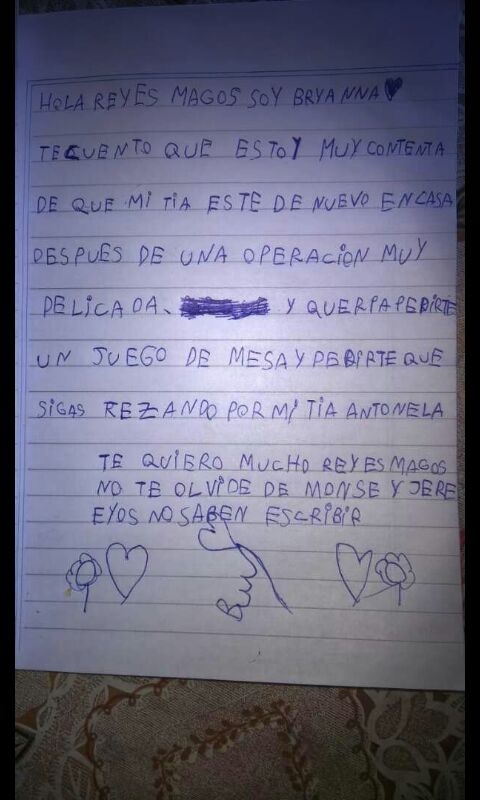 HOLA REYES MAGOS SOY BRYANNA
TECUENTO QUE ESTOY MUY CONTENTA
DE QUE MI TIA ESTE DE NUEVO EN CASA
DESPUES DE UNA OPERACION MUY
DELICADA, Y QUERIA PEDIRTE
UN JUEGO DE MESA Y PEDIRTE QUE
SIGAS REZANDO POR MI TIA ANTONELA
TE QUIERO MUCHO REYES MAGOS
NO TE OLVIDE DE MONSE Y JERE
EYOS NO SABEN ESCRIBIR